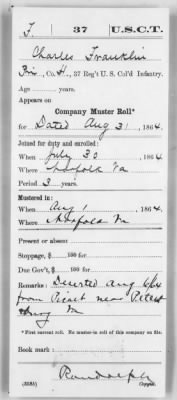 F. 37 U.S.C.T.
Charles Franklin
Pvt., Co. H., 37 Reg't U. S. Col'd Infantry.
Age years.
Appears on
Company Muster Roll*
for Dated Aug 31, 1864.
Joined for duty and enrolled:
When July 30, 1864.
Where Norfolk Va
Period 3 years.
Mustered in:
When Aug 1, 186 .
Where Norfolk Va
Present or absent
Stoppage, $ 100 for
Due Gov't, $ 100 for
Remarks: Deserted Aug
from near Peters
burg Va
* First current roll. No muster-in roll of this company on file.
Book mark:
Randolph
(858i) Copyist.